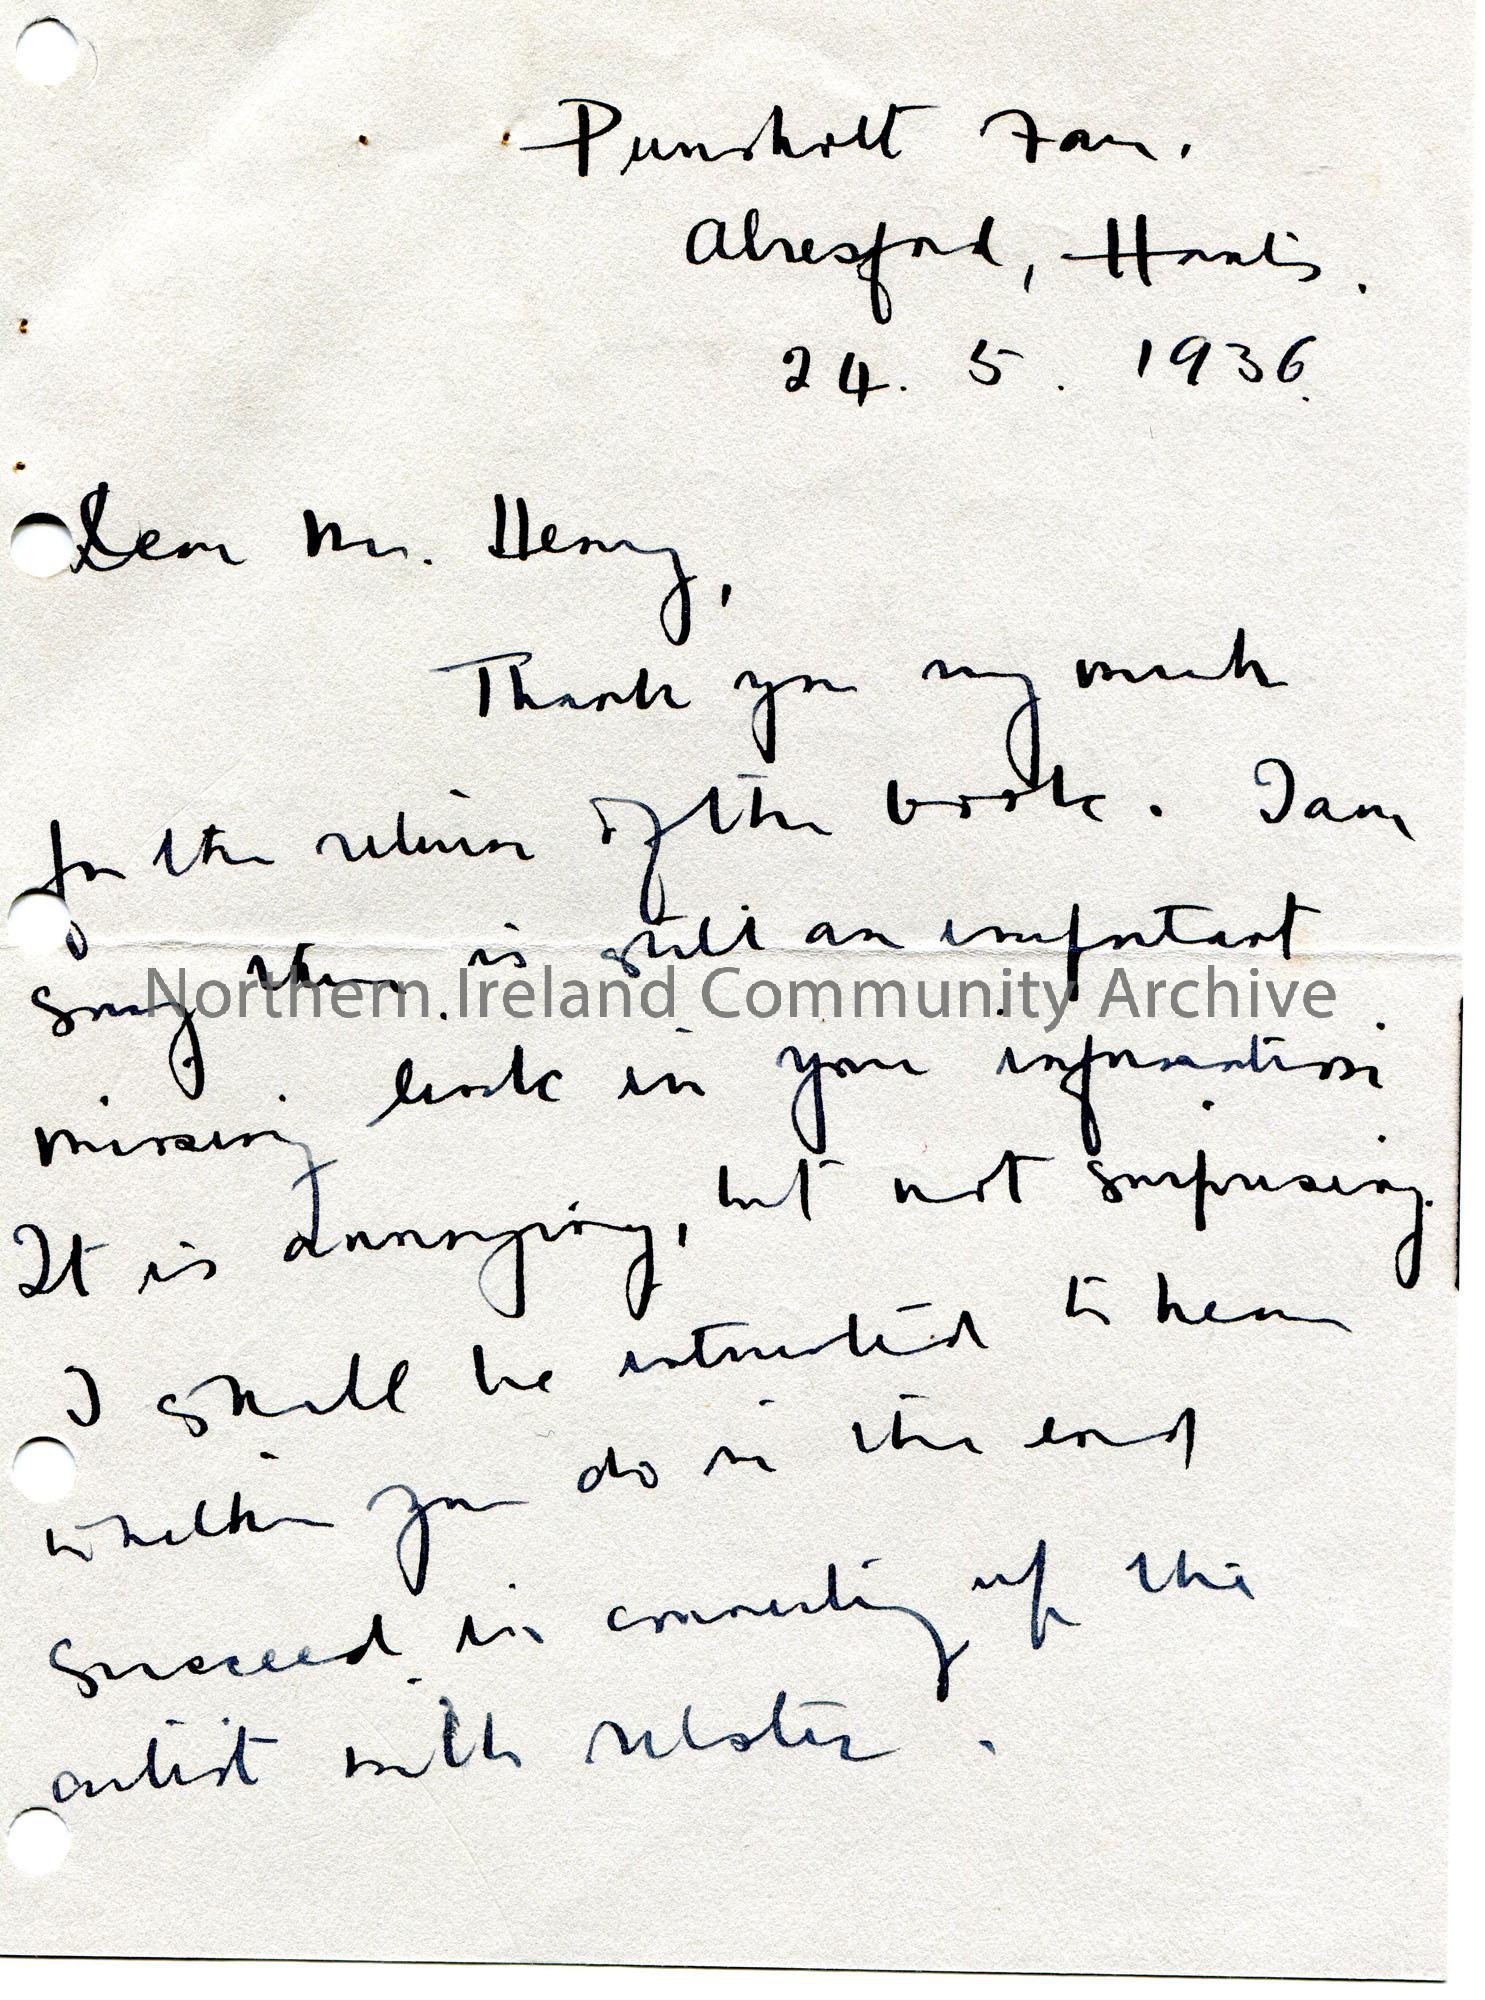 Punsholt Farm.
Alresford, Hants.
24. 5. 1936.
Dear Mr. Henry,
Thank you very much
for the return of the book. I am
sorry there is still an important
Northern Ireland Community Archive
missing link in your information.
It is annoying, but not surprising.
I shall be interested to hear
whether you do in the end
succeed in connecting up the
artist with Ulster.